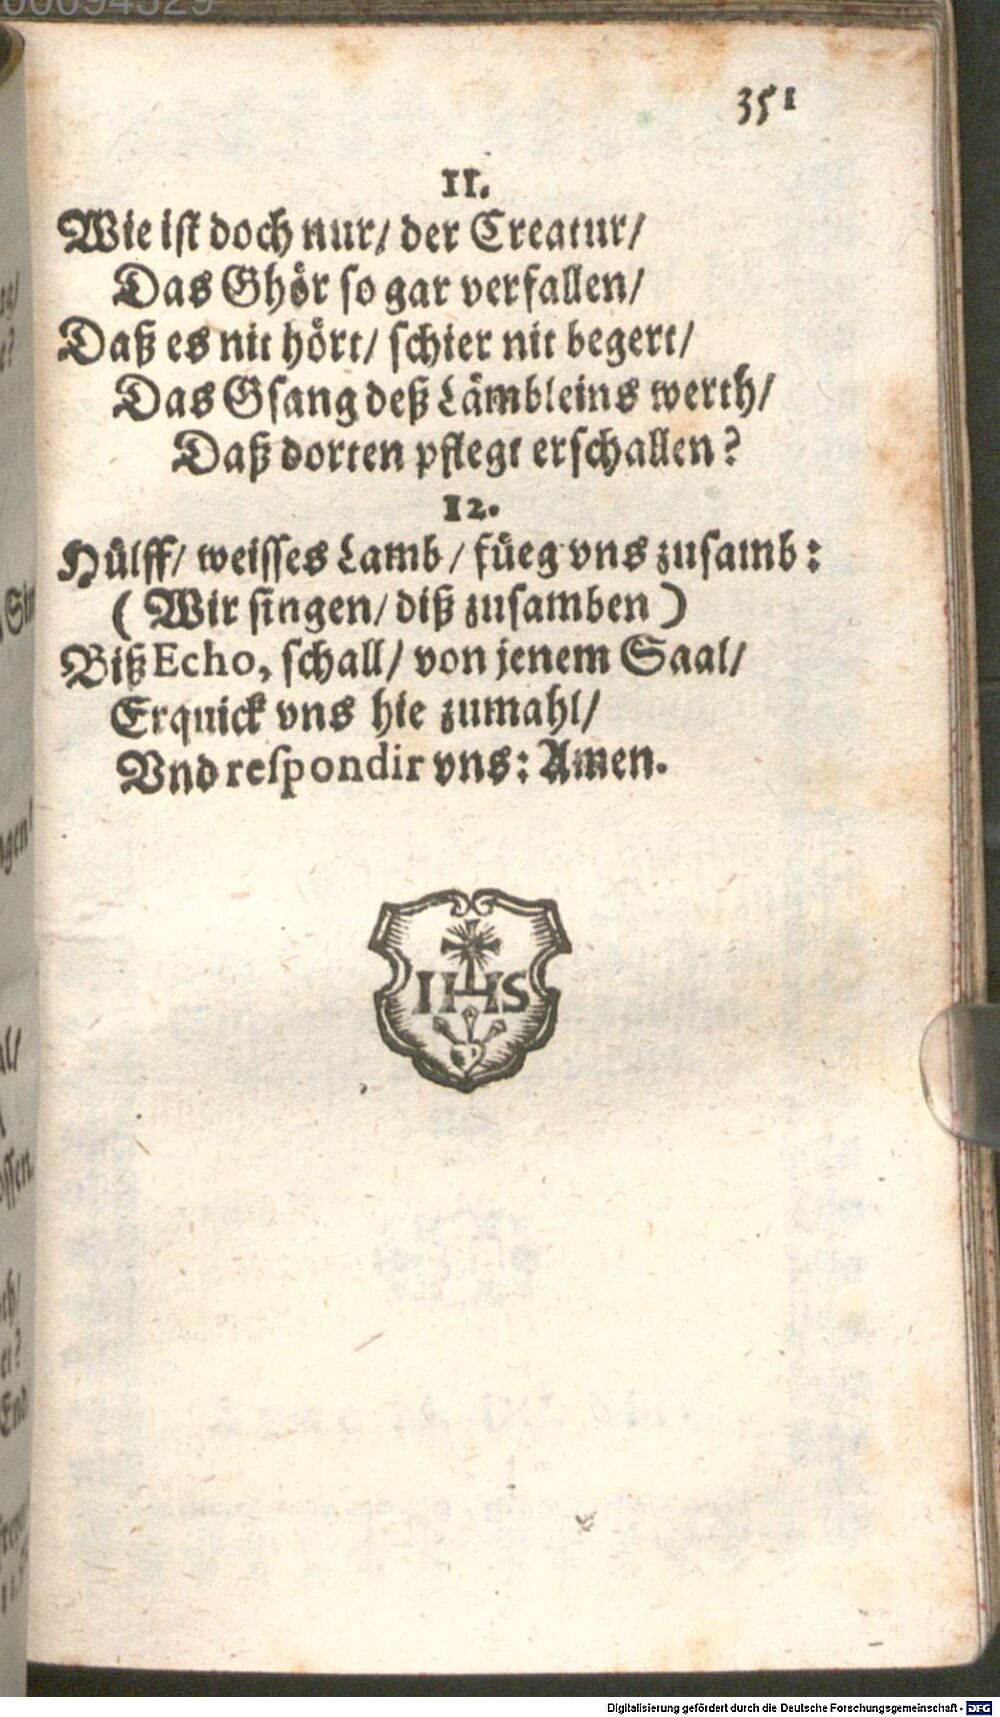 00094329
351
11.
Wie iſt doch nur/ der Creatur/
Das Ghör ſo gar verfallen/
Daß es nit hört/ ſchier nit begert/
Das Gſang deß Lämbleins werth/
Daß dorten pflegt erſchallen?
12.
Hülff/ weiſſes Lamb/ füeg vns zuſamb:
( Wir ſingen/ diß zuſamben )
Biß Echo, ſchall/ von jenem Saal/
Erquick vns hie zumahl/
Vnd reſpondir vns: Amen.
IHS
Digitalisierung gefördert durch die Deutsche Forschungsgemeinschaft - DFG